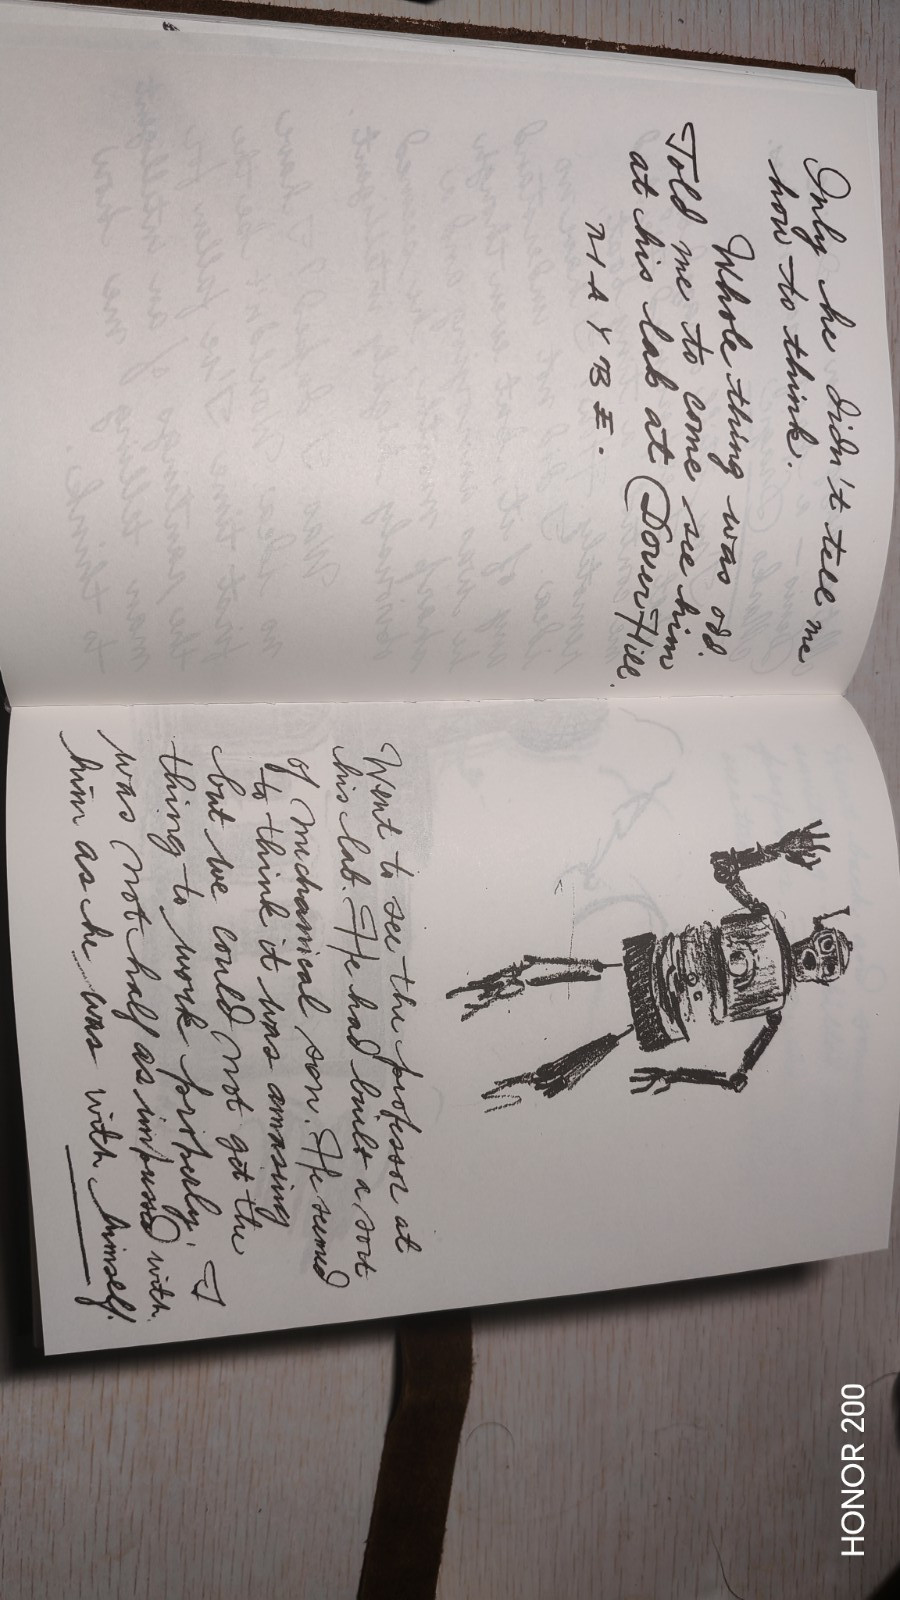 Only he didn't tell me
how to think.
Whole thing was odd.
Told me to come see him
at his lab at Dover Hill.
MAYBE.
Went to see the professor at
his lab. He had built a sort
of mechanical son. He seemed
to think it was amazing
but we could not get the
thing to work properly. I
was not half as impressed with
him as he was with himself.
HONOR 200